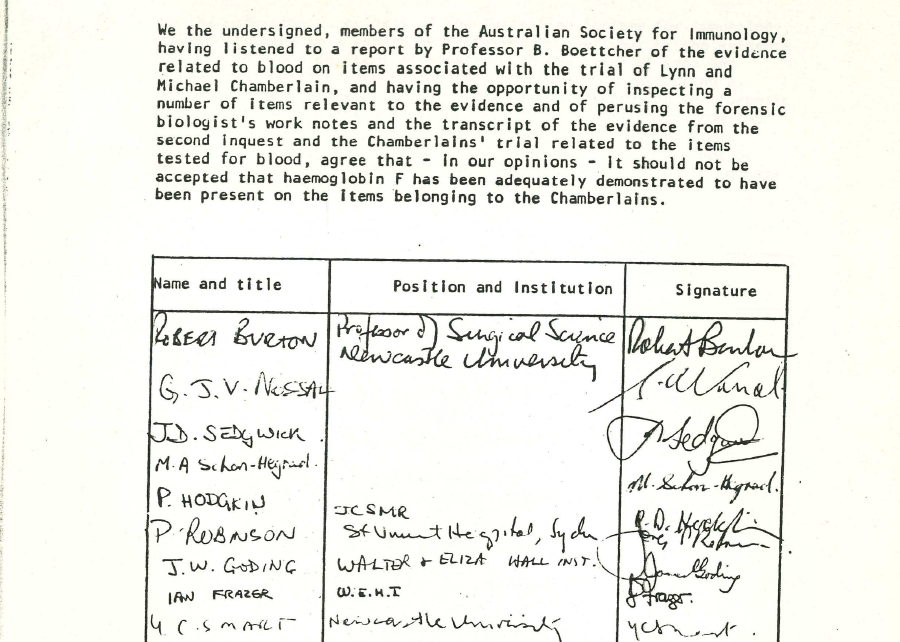 We the undersigned, members of the Australian Society for Immunology,
having listened to a report by Professor B. Boettcher of the evidence
related to blood on items associated with the trial of Lynn and
Michael Chamberlain, and having the opportunity of inspecting a
number of items relevant to the evidence and of perusing the forensic
biologist's work notes and the transcript of the evidence from the
second inquest and the Chamberlains' trial related to the items
tested for blood, agree that - in our opinions - it should not be
accepted that haemoglobin F has been adequately demonstrated to have
been present on the items belonging to the Chamberlains.
Name and title Position and Institution Signature
ROBERT BURTON Professor of Surgical Science Robert Burton
Newcastle University
G. J. V. NOSSAL
J.D. SEDGWICK Sedgwick
M.A Schon-Hegrad. M. Schon-Hegrad.
P. HODGKIN JCSMR
P ROBINSON St Vincent Hospital, Sydn
J.W. GODING WALTER + ELIZA HALL INST. James Goding
IAN FRAZER W.E.H.I Frazer.
Y.C. SMART Newcastle University YCSmart.